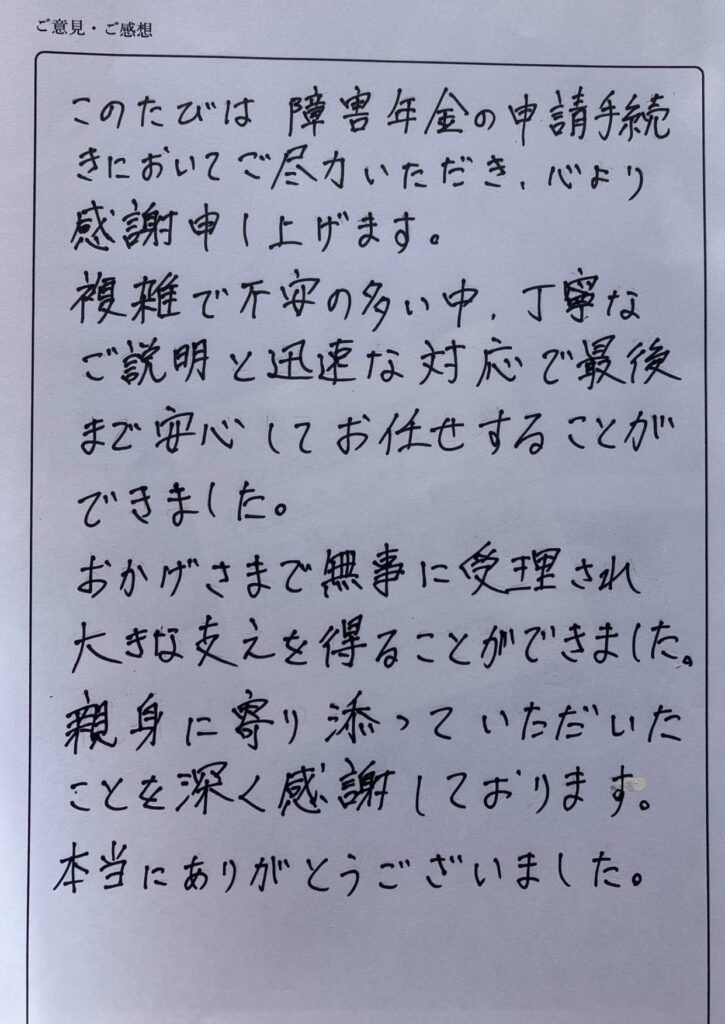 ご意見・ご感想
このたびは 障害年金の申請手続
きにおいてご尽力いただき、心より
感謝申し上げます。
複雑で不安の多い中、丁寧な
ご説明と迅速な対応で最後
まで安心してお任せすることが
できました。
おかげさまで無事に受理され
大きな支えを得ることができました。
親身に寄り添っていただいた
ことを深く感謝しております。
本当にありがとうございました。